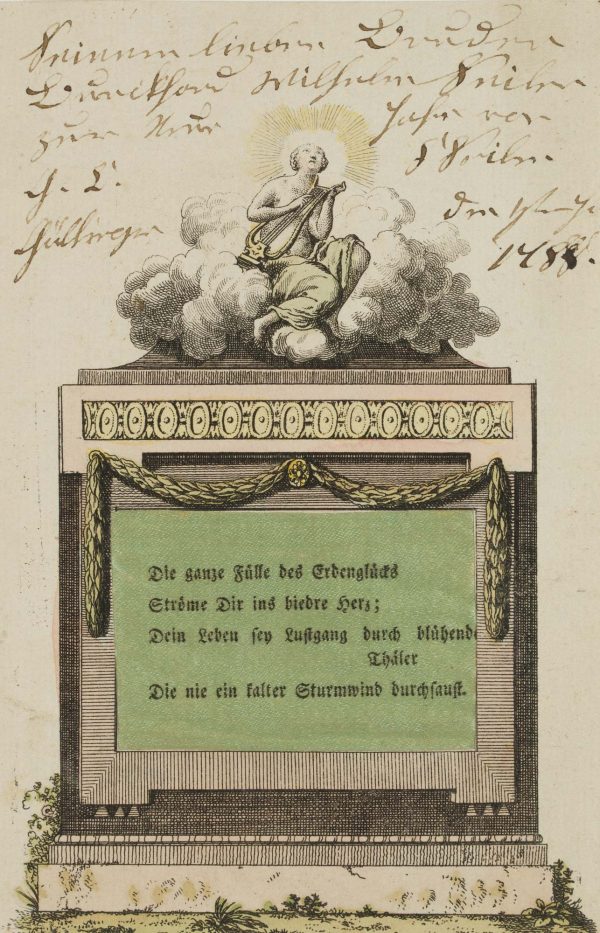 Seinem lieben Bruder
Burckhard Wilhelm
zum Neuen Jahr von
den 1ten
1788.
Die ganze Fülle des Erdenglücks
Ströme Dir ins biedre Herz;
Dein Leben sey Lustgang durch blühende
Thäler
Die nie ein kalter Sturmwind durchsaust.